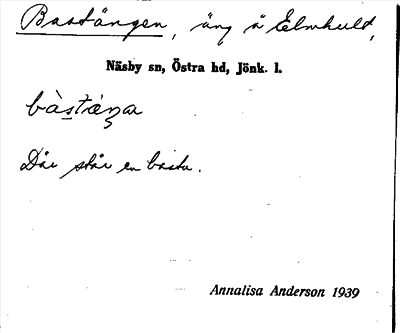 Bastängen, äng å Elmhult,
Näsby sn, Östra hd, Jönk. l.
bàstäŋa
Där står en bastu.
Annalisa Anderson 1939